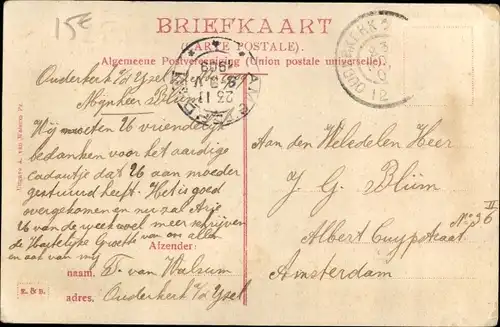 15E
BRIEFKAART
(CARTE POSTALE).
Algemeene Postvereeniging (Union postale universelle).
Ouderkerk a/d IJsel
Mijnheer Blüm
Wij moeten U vriendelijk
bedanken voor het aardige
cadautje dat U aan moeder
gestuurd heeft. Het is goed
overgekomen en nu zal Arie
U van de week wel meer schrijven
de Hartelijke Groete van ons allen
en ook van mij
Afzender:
naam. T. van Walsum
adres. Ouderkerk a/d IJsel
Aan den Weledelen Heer
J. G. Blüm
Albert Cuypstraat No 96 II
Amsterdam
Uitgave A. van Walsum
E. & B.
OUDERKERK
23
12
AMSTERDAM
23 11